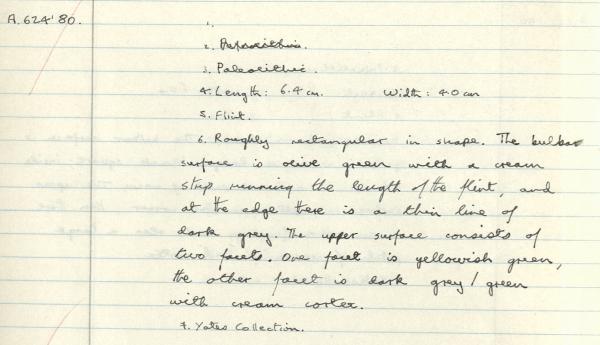 A.624'80.
1.
2. Prehistoric.
3. Paleolithic.
4. Length: 6.4 cm. Width: 4.0 cm
5. Flint.
6. Roughly rectangular in shape. The bulbar
surface is olive green with a cream
strip running the length of the flint, and
at the edge there is a thin line of
dark grey. The upper surface consists of
two facets. One facet is yellowish green,
the other facet is dark grey/green
with cream cortex.
7. Yates Collection.